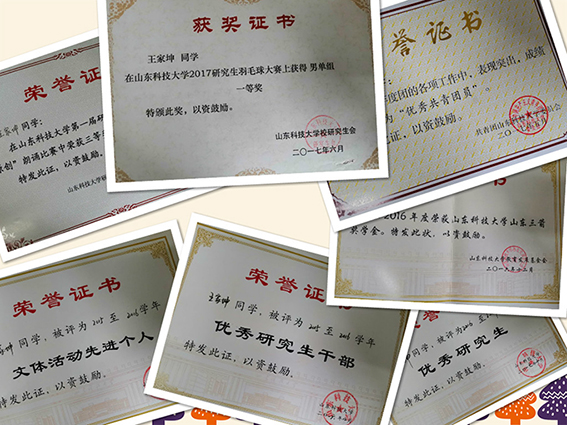 获奖证书
王家坤 同学
在山东科技大学2017研究生羽毛球大赛上获得 男单组
一等奖
特颁此奖,以资鼓励。
山东科技大学校研究生会
二〇一七年六月
荣誉证书
同学:
在山东科技大学第一届研
原创”朗诵比赛中荣获三等奖
特发此证,以资鼓励。
山东科技大学研
誉证书
年度团的各项工作中,表现突出,成绩
为“优秀共青团员”。
此证,以资鼓励。
共青团山东科技大学
2016年度荣获山东科技大学山东三箭
奖学金。特发此状,以资鼓励。
山东科技大学教育发展基金会
二〇一六年十二月
荣誉证书
坤 同学,被评为2015至2016学年
文体活动先进个人
特发此证,以资鼓励。
荣誉证书
王家坤 同学,被评为2015至2016学年
优秀研究生干部
特发此证,以资鼓励。
荣誉证书
同学,被评为
优秀研究生
特发此证,以资鼓励。